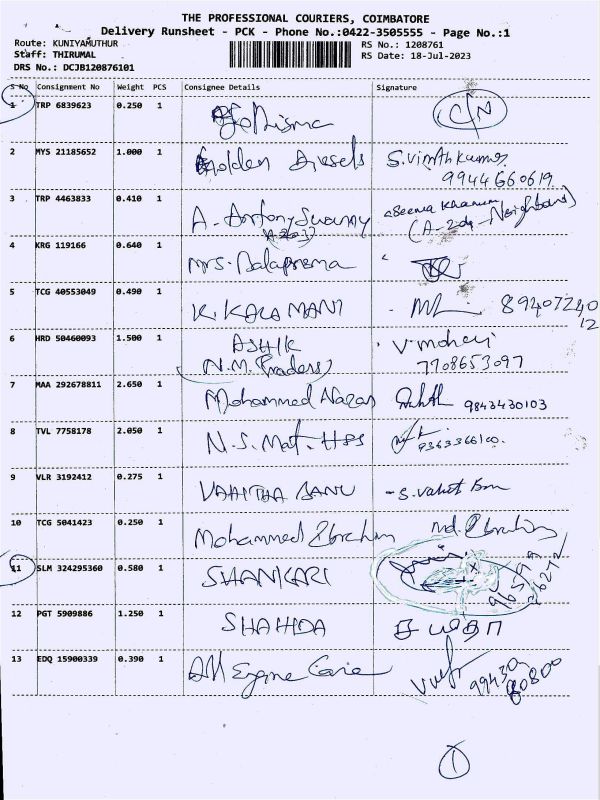 THE PROFESSIONAL COURIERS, COIMBATORE
Delivery Runsheet - PCK - Phone No.:0422-3505555 - Page No.:1
Route: KUNIYAMUTHUR RS No.: 1208761
Staff: THIRUMAL RS Date: 18-Jul-2023
DRS No.: DCJB120876101
S No Consignment No Weight PCS Consignee Details Signature
1 TRP 6839623 0.250 1 C/N
2 MYS 21185652 1.000 1 Golden Diesels S.Vinothkumar
9944660619
3 TRP 4463833 0.410 1 A. Antony Swamy Seema Khanum
(A-204-Neighbour)
4 KRG 119166 0.640 1 Mrs. Balaprema
5 TCG 40553049 0.490 1 K. KALAMANI 8940724012
6 HRD 50460093 1.500 1 ASHIK V. mohan
N.M. Traders 7708653097
7 MAA 292678811 2.650 1 Mohammed Nazar 9843430103
8 TVL 7758178 2.050 1 N.S. Mat. HSS 9363366100.
9 VLR 3192412 0.275 1 VAHITHA BANU
10 TCG 5041423 0.250 1 Mohammed Ibrahim md. Ibrahim
11 SLM 324295360 0.580 1 SHANKARI
12 PGT 5909886 1.250 1 SHAHIDA
13 EDQ 15900339 0.390 1 All Engine Care 99430
80800
1